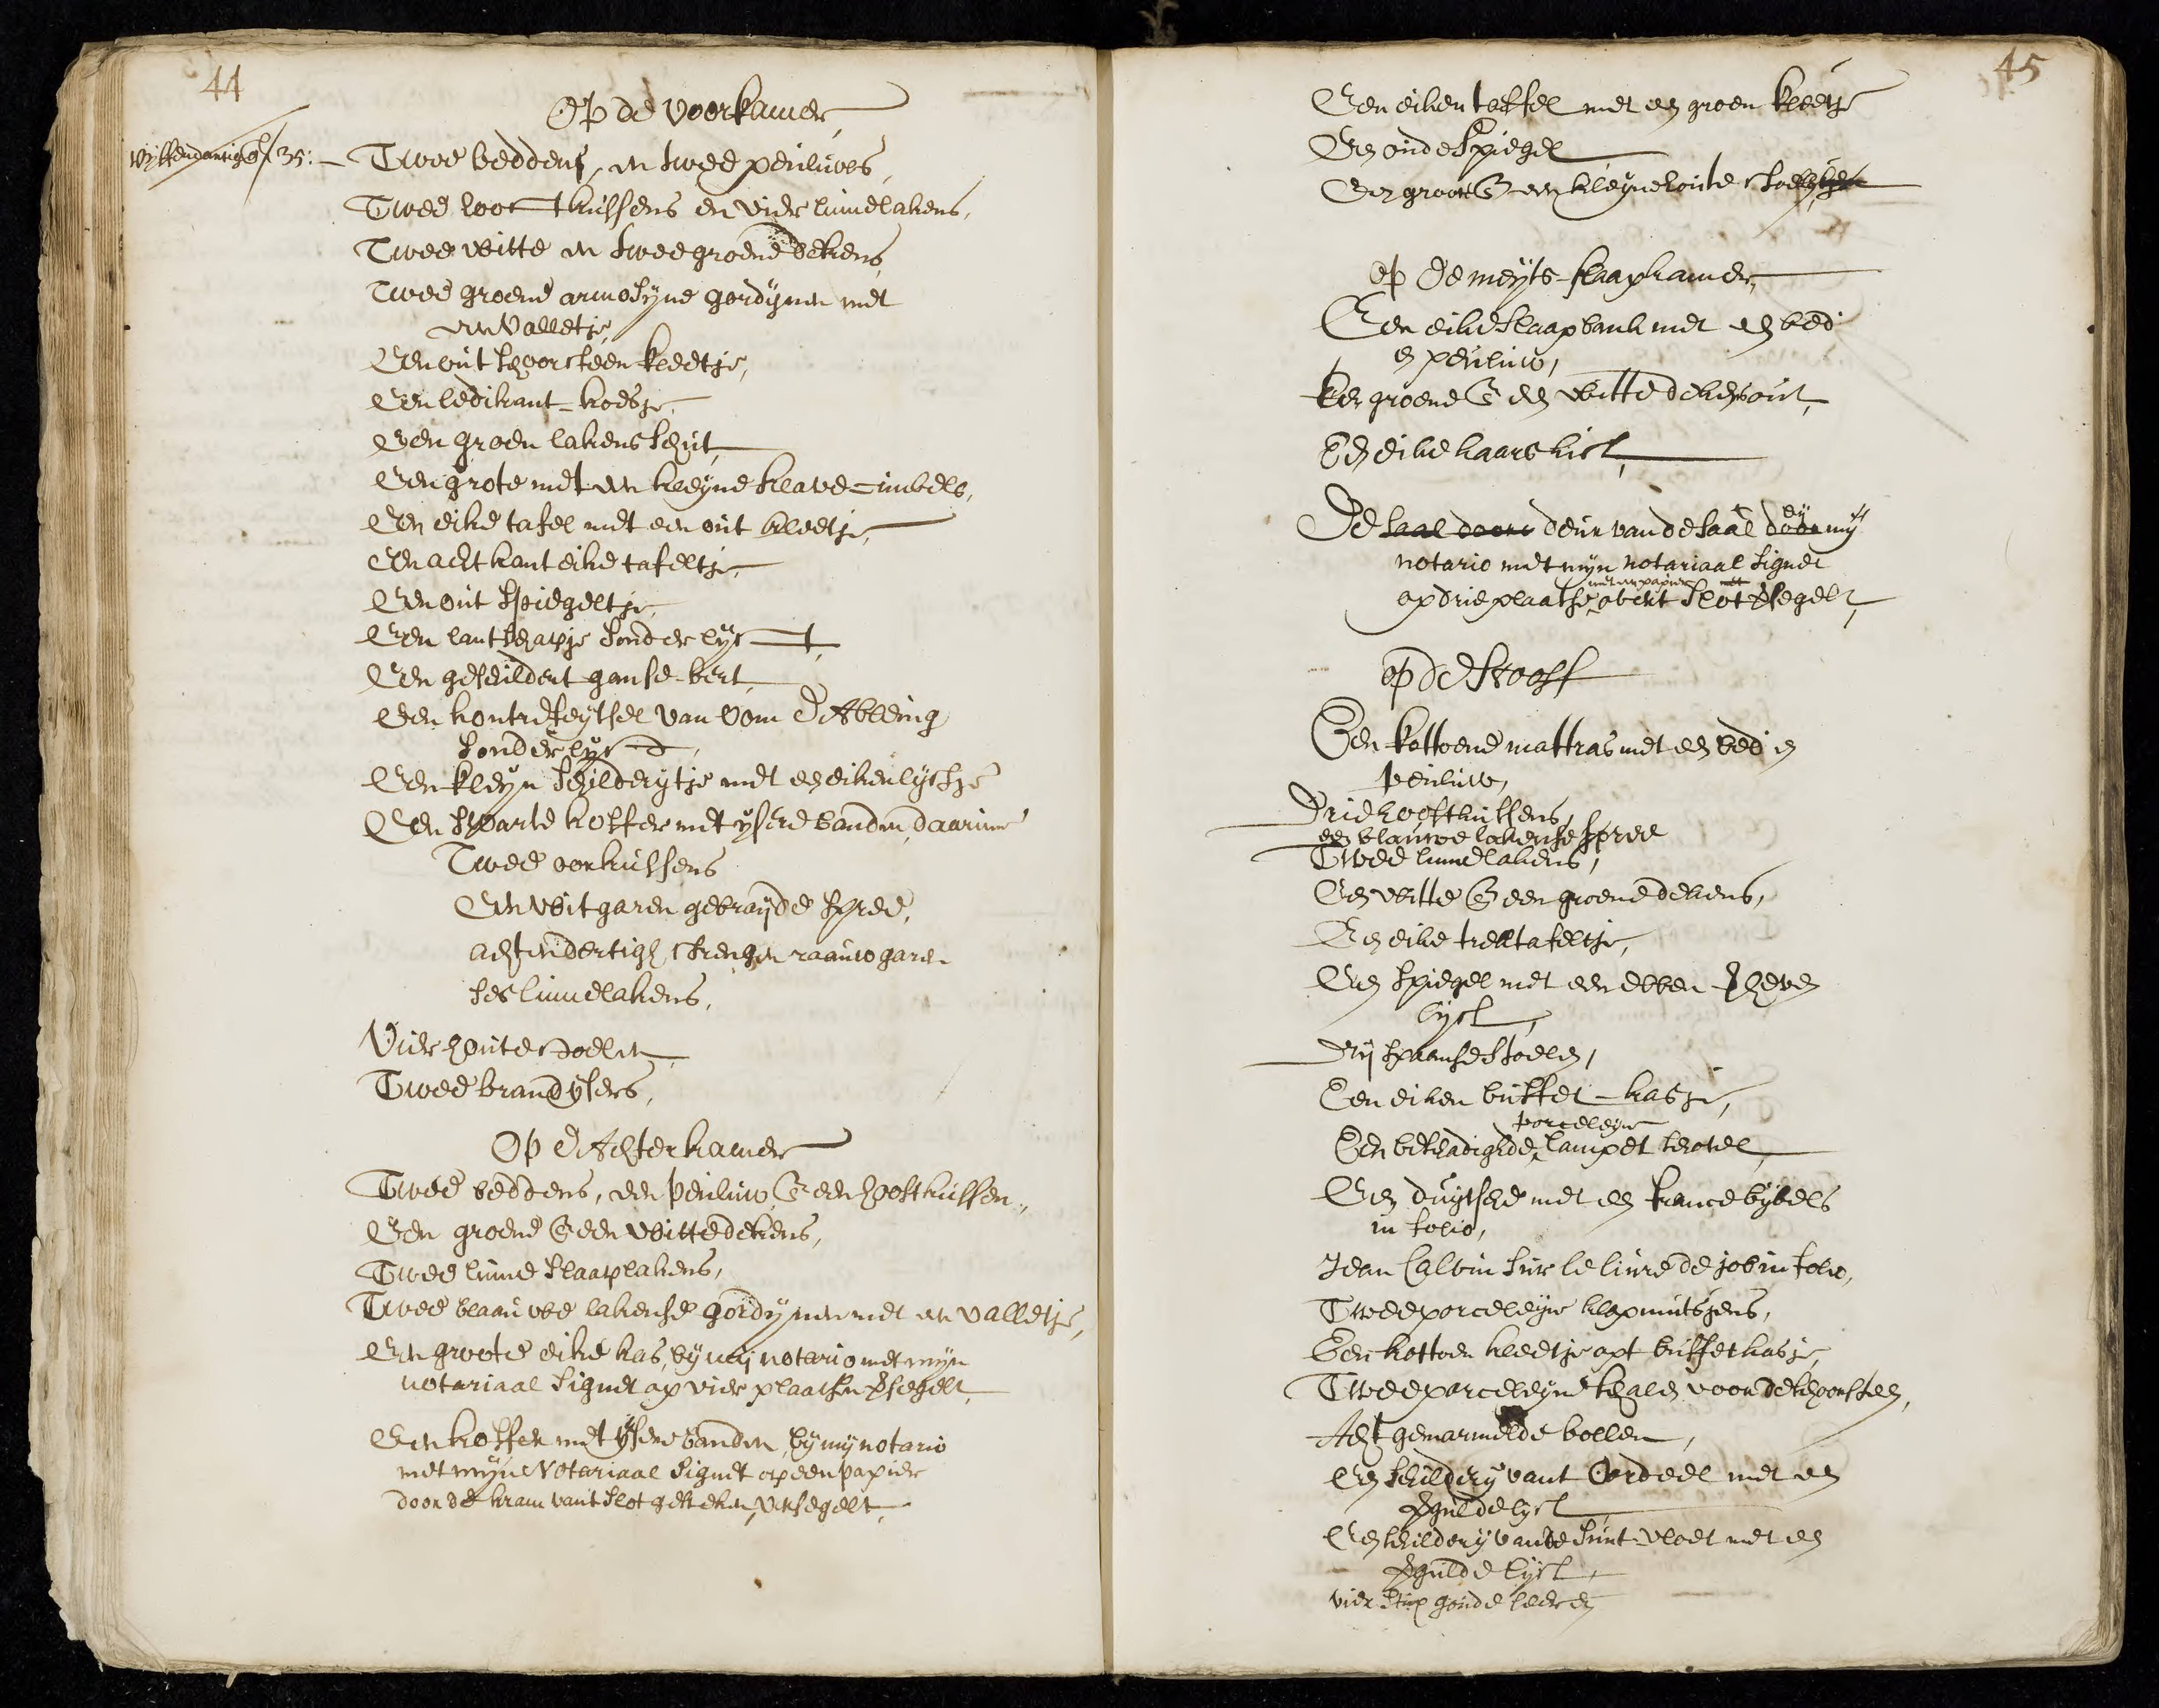 44
Op de voorkamer
Twee beddens, en twee peuluwes,
Twee kussens en vier linnelakens,
Twee witte en twee groene dekens
Twee groene armosyne gordynen met
een valletje,
Een out schoorsteen kleetje,
Een ledikant-
Een groen lakens schut,
Een grote met een kleyne klave-cimbels,
Een eike tafel met een out kleetje,
Een achtkant eike tafeltje,
Een out spiegeltje,
Een lantschapje sonder lyst,
Een geschildert ganse-bert,
Een konterfeytsel van oom
sonder lyst,
Een kleyn schilderytje met een eiken lystje
Een swarte koffer met ysere banden, daarinne
Twee oorkussens
Een wit garen gebreyde spree,
achtendertigh strengen raauw garen
ses linnelakens,
Vier houte stoelen
Twee brandysers,
Op d'Achterkamer
Twee beddens, een peuluw & een hooftkussen,
Een groene & een witte dekens,
Twee linne slaaplakens,
Twee blaauwe lakense gordynen met een valletje,
Een groote eike kas, by my notario met myn
notariaal signet op vier plaatsen versegelt,
Een koffer met ysere banden, by my notario
met myn Notariaal signet op een papier
door de kram vant slot gesteken, versegelt,
45
Een eiken taffel met een groen kleetje
Een oude spiegel
Een groote & een kleyne houte
op de meyts-slaapkamer,
Een eike slaapbank met een bed
en peuluw,
Een groene & een witte dekens out,
Een eike kaarskist,
De saal deure deur van de saal door by my
notario met myn notariaal signet
met een papier met
op drie plaatse, over het slot versegelt,
op de
Een kattoene mattras met een bed en
peuluw,
Drie hooftkussens,
een blauwe lakense spree
Twee linnelakens,
Een witte & een groene dekens,
Een eike trektafeltje,
Een spiegel met een ebben
lyst,
dry spaanse stoelen,
Een eiken buffet-kasje,
porceleyne
Een beschadighde, lampet schotel,
Een duytsche met een france bybels
in folio,
Jean Calvin sur le livre de job in folio,
Twee porceleyne klapmutsjens,
Een kattoen kleetje opt buffetkasje,
Twee porceleyne schalen voor de schoorsteen,
Acht gemarmelde bollen,
Een schildery vant Oordeel met een
vergulde lyst
Een schildery vande sunt-vloet met een
vergulde lyst,
vier goude leeren